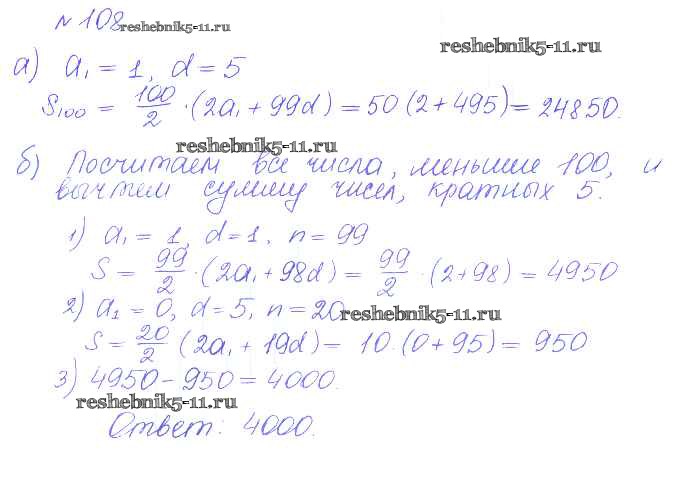 № 108 reshebnik5-11.ru
reshebnik5-11.ru
а) a₁ = 1, d = 5
S₁₀₀ = 100/2 · (2a₁ + 99d) = 50 (2 + 495) = 24850.
reshebnik5-11.ru
б) Посчитаем все числа, меньшие 100, и
вычтем сумму чисел, кратных 5.
1) a₁ = 1, d = 1, n = 99
S = 99/2 · (2a₁ + 98d) = 99/2 · (2 + 98) = 4950
2) a₁ = 0, d = 5, n = 20 reshebnik5-11.ru
S = 20/2 (2a₁ + 19d) = 10 · (0 + 95) = 950
3) 4950 - 950 = 4000.
reshebnik5-11.ru
Ответ: 4000.